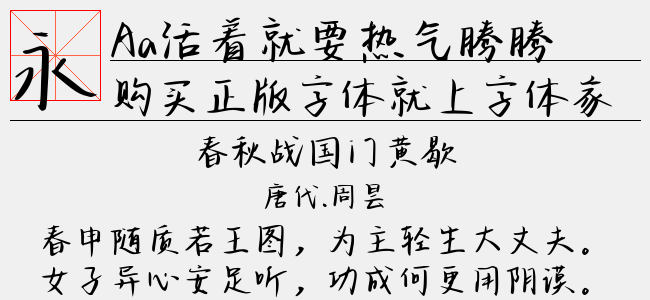 永
Aa活着就要热气腾腾
购买正版字体就上字体家
春秋战国门黄歇
唐代.周昙
春申随质若王图，为主轻生大丈夫。
女子异心安足听，功成何更用阴谟。